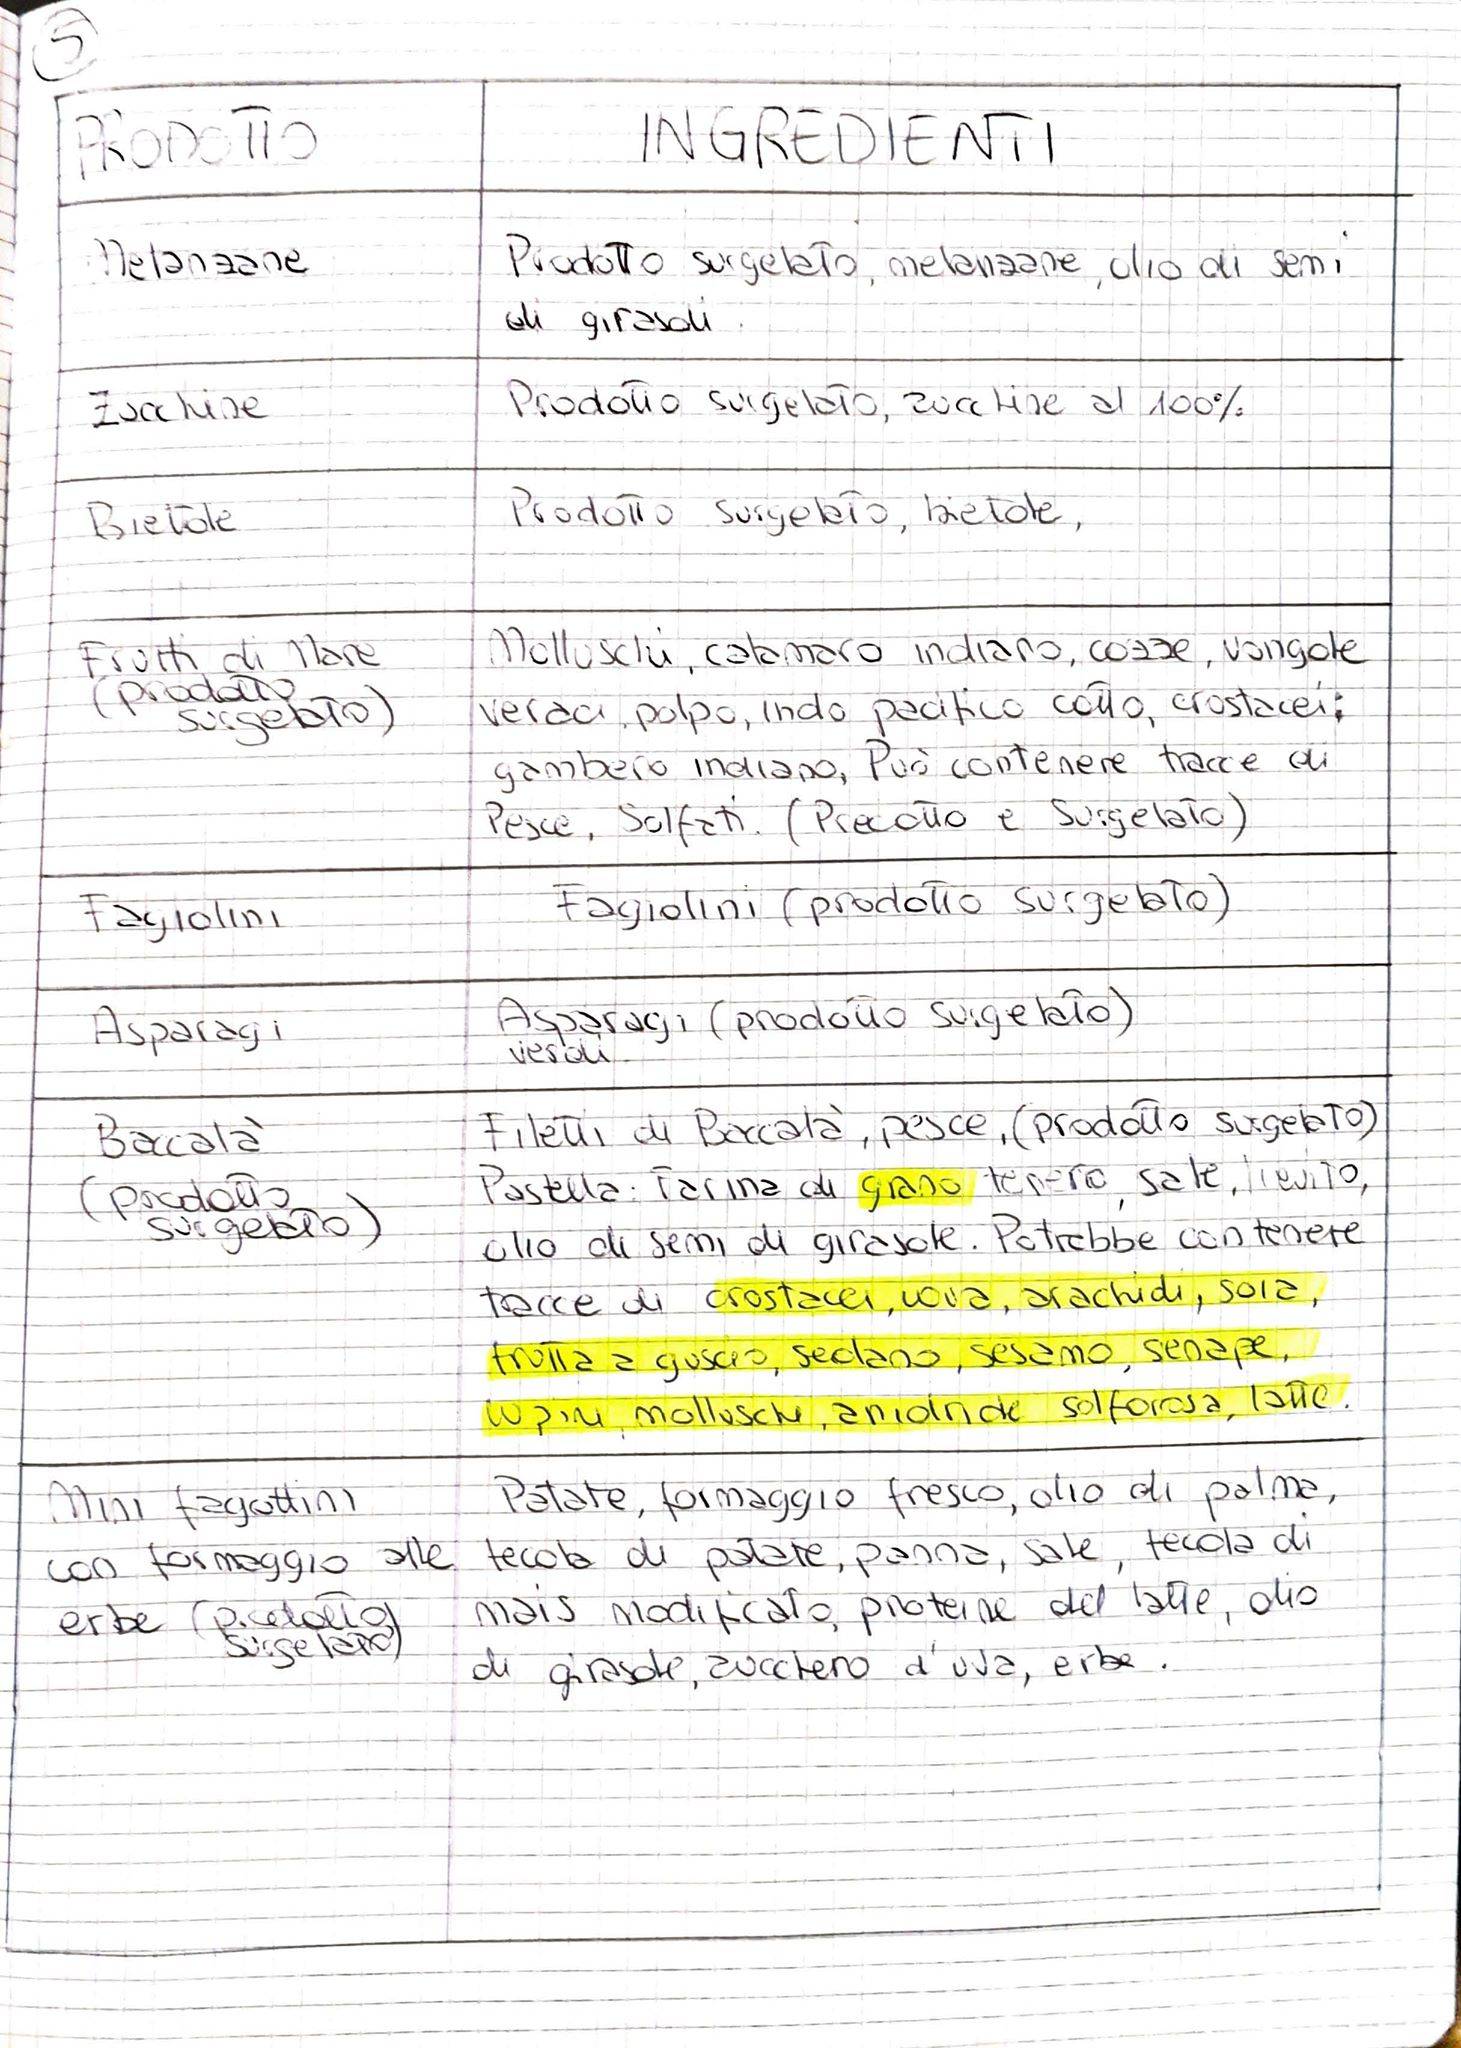 5
PRODOTTO
INGREDIENTI
Melanzane
Prodotto surgelato, melanzane, olio di semi
di girasoli.
Zucchine
Prodotto surgelato, zucchine al 100%
Bietole
Prodotto surgelato, bietole,
Frutti di Mare
(prodotto
surgelato)
Molluschi, calamaro indiano, cozze, vongole
veraci, polpo, indo pacifico cotto, crostacei;
gambero indiano, Può contenere tracce di
Pesce, Solfiti. (Precotto e Surgelato)
Fagiolini
Fagiolini (prodotto surgelato)
Asparagi
Asparagi (prodotto surgelato)
verdi
Baccalà
(prodotto
surgelato)
Filetti di Baccalà, pesce, (prodotto surgelato)
Pastella: Farina di grano tenero, sale, lievito,
olio di semi di girasole. Potrebbe contenere
tracce di crostacei, uova, arachidi, soia,
frutta a guscio, sedano, sesamo, senape,
lupini, molluschi, anidride solforosa, latte.
Mini fagottini
con formaggio alle
erbe (prodotto
surgelato)
Patate, formaggio fresco, olio di palma,
fecola di patate, panna, sale, fecola di
mais modificato, proteine del latte, olio
di girasole, zucchero d'uva, erbe.